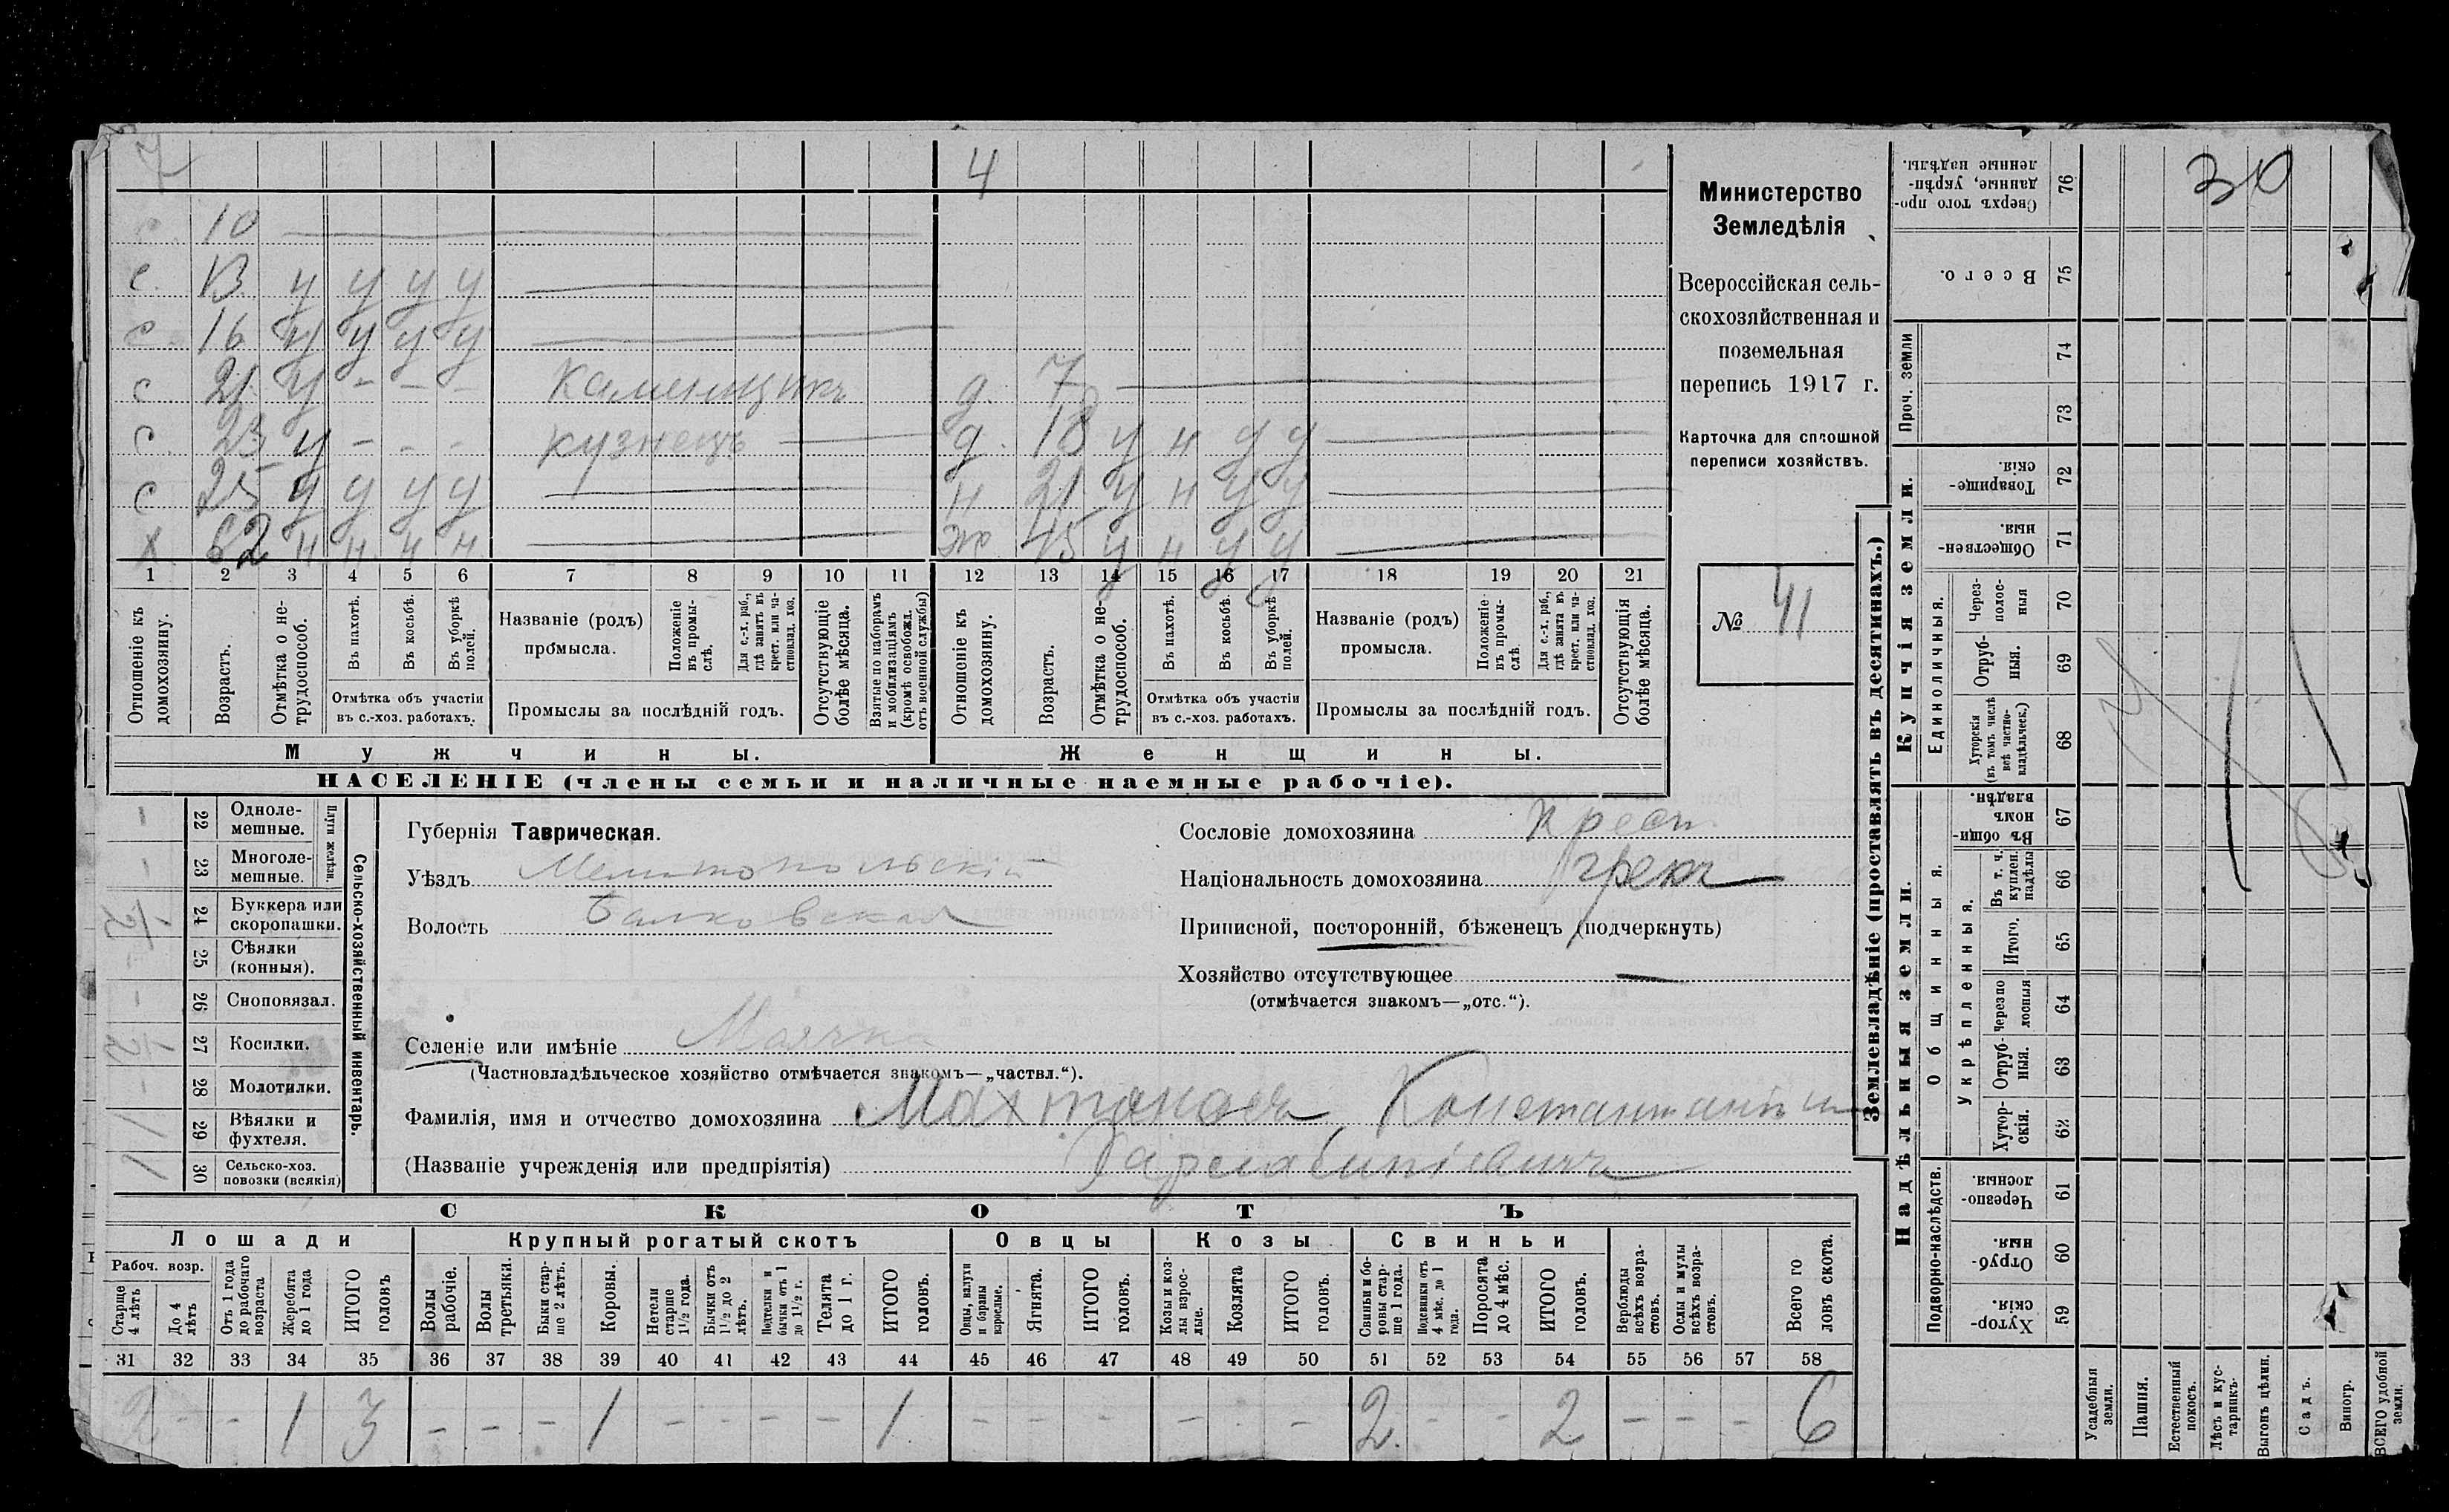 7 4
с. 10
с. 13 у у у у у
с 16 у у у у
с 21 у - - - Каменщикъ д. 7
с. 23 у - - - кузнецъ д. 18 у н у у
с 25 у у у у н 21 у н у у
х. 62 н н н н ж 45 у н у у
1 2 3 4 5 6 7 8 9 10 11 12 13 14 15 16 17 18 19 20 21
Отношеніе къ домохозяину.
Возрастъ.
Отмѣтка о не-трудоспособ.
Въ пахотѣ.
Въ косьбѣ.
Въ уборкѣ полей.
Отмѣтка объ участіи въ с.-хоз. работахъ.
Названіе (родъ) промысла.
Положеніе въ промы-слѣ.
Для с.-х. раб., гдѣ занятъ въ крест. или ча-стновлад. хоз.
Промыслы за послѣдній годъ.
Отсутствующіе болѣе мѣсяца.
Взятые по наборамъ и мобилизаціямъ (кромѣ освобожд. отъ военной службы)
Отношеніе къ домохозяину.
Возрастъ.
Отмѣтка о не-трудоспособ.
Въ пахотѣ.
Въ косьбѣ.
Въ уборкѣ полей.
Отмѣтка объ участіи въ с.-хоз. работахъ.
Названіе (родъ) промысла.
Положеніе въ промы-слѣ.
Для с.-х. раб., гдѣ занята въ крест. или ча-стновлад. хоз.
Промыслы за послѣдній годъ.
Отсутствующія болѣе мѣсяца.
Мужчины. Женщины.
НАСЕЛЕНІЕ (члены семьи и наличные наемные рабочіе).
Министерство
Земледѣлія
Всероссійская сель-
скохозяйственная и
поземельная
перепись 1917 г.
Карточка для сплошной
переписи хозяйствъ.
№ 41
22 Одноле-мешные.
23 Многоле-мешные.
Плуги желѣзн.
24 Буккера или скоропашки.
25 Сѣялки (конныя).
26 Сноповязал.
27 Косилки.
28 Молотилки.
29 Вѣялки и фухтеля. 1
30 Сельско-хоз. повозки (всякія) 1
Сельско-хозяйственный инвентарь.
Губернія Таврическая.
Уѣздъ Мелитопольскій
Волость Балковская
Селеніе или имѣніе Маячка
(Частновладѣльческое хозяйство отмѣчается знакомъ—„частвл.“).
Фамилія, имя и отчество домохозяина Константинъ
(Названіе учрежденія или предпріятія)
Сословіе домохозяина крест.
Національность домохозяина грекъ
Приписной, посторонній, бѣженецъ (подчеркнуть)
Хозяйство отсутствующее —
(отмѣчается знакомъ—„отс.“).
СКОТЪ
Лошади Крупный рогатый скотъ Овцы Козы Свиньи
Рабоч. возр.
Старше 4 лѣтъ
До 4 лѣтъ
Отъ 1 года до рабочаго возраста
Жеребята до 1 года
ИТОГО головъ
Волы рабочіе.
Волы третьяки.
Быки стар-ше 2 лѣтъ.
Коровы.
Нетели старше 1½ года.
Бычки отъ 1½ до 2 лѣтъ.
Подтелки и бычки отъ 1 до 1½ г.
Телята до 1 г.
ИТОГО головъ.
Овцы, валухи и бараны взрослые.
Ягнята.
ИТОГО головъ.
Козы и коз-лы взрос-лые.
Козлята
ИТОГО головъ.
Свиньи и бо-ровы стар-ше 1 года.
Подсвинки отъ 4 мѣс. до 1 года.
Поросята до 4 мѣс.
ИТОГО головъ.
Верблюды всѣхъ возра-стовъ.
Ослы и мулы всѣхъ возра-стовъ.
Всего го ловъ скота.
31 32 33 34 35 36 37 38 39 40 41 42 43 44 45 46 47 48 49 50 51 52 53 54 55 56 57 58
2 - - 1 3 - - - 1 - - - - 1 - - - - - - 2. - - 2 - - - 6
Землевладѣніе (проставлять въ десятинахъ.)
Купчія земли.
Надѣльныя земли.
76 Сверхъ того про-данные, укрѣп-ленные надѣлы. 30
75 Всего.
Проч. земли
74
73
72 Товарище-скія.
71 Обществен-ныя.
Единоличныя.
70 Через-полос-ныя
69 Отруб-ныя.
68 Хуторскія (въ томъ числѣ всѣ частно-владѣльческ.)
67 Въ общин-номъ владѣн.
Общинныя.
Укрѣпленныя.
66 Въ т. ч. куплен. надѣлы
65 Итого.
64 Черезпо лосныя
63 Отруб-ныя.
62 Хутор-скія.
Подворно-наслѣдств.
61 Черезпо-лосныя.
60 Отруб-ныя.
59 Хутор-скія.
Усадебныя земли.
Пашня.
Естественный покосъ.
Лѣсъ и кус-тарникъ.
Выгонъ цѣлин.
Садъ.
Виногр.
ВСЕГО удобной земли.